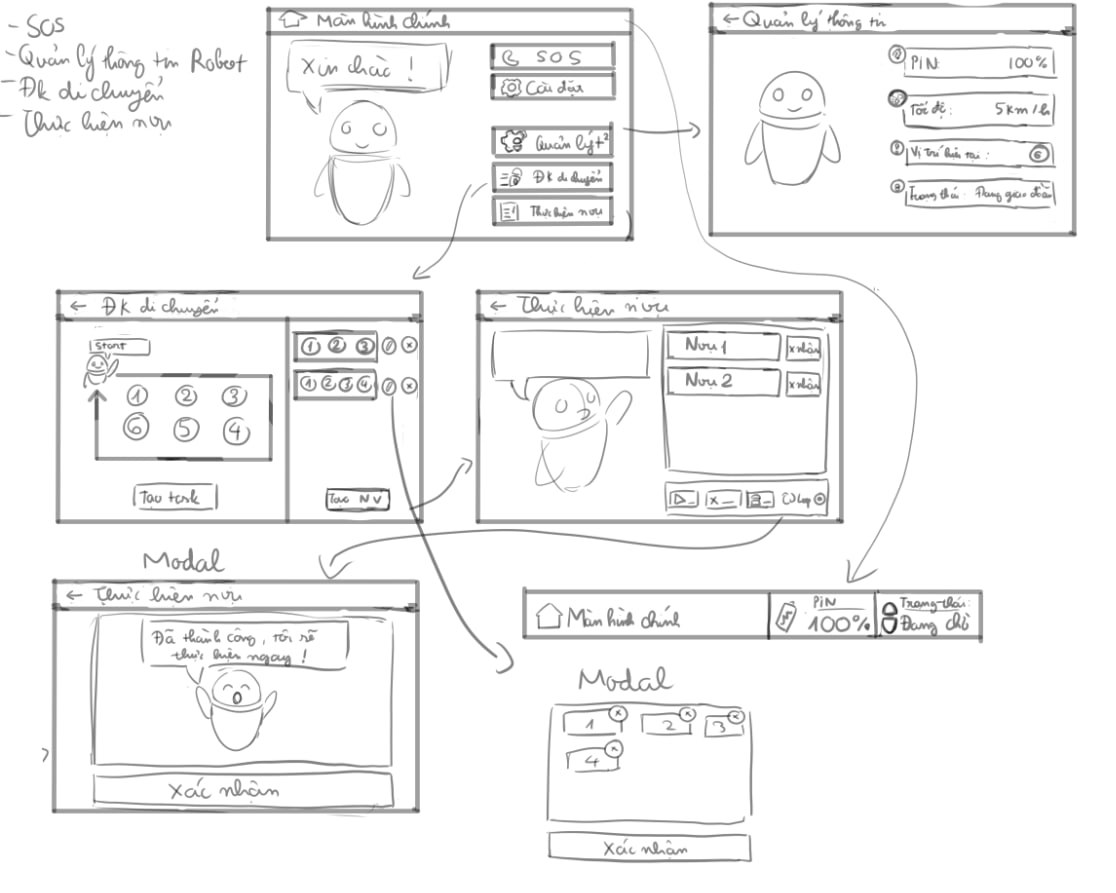 - SOS
- Quản lý thông tin Robot
- Đk di chuyển
- Thực hiện nvu
Màn hình chính
Xin chào !
SOS
Cài đặt
Quản lý t²
Đk di chuyển
Thực hiện nvu
← Quản lý thông tin
PIN: 100%
Tốc độ: 5km/h
Vị trí hiện tại: 6
Trạng thái: Đang giao đồ ăn
← Đk di chuyển
Start
1 2 3
6 5 4
Tạo task
1 2 3 x
1 2 3 4 x
Tạo NV
← Thực hiện nvu
Nvu 1 x nhận
Nvu 2 x nhận
Lap
Modal
← Thực hiện nvu
Đã thành công, tôi sẽ
thực hiện ngay !
Xác nhận
Màn hình chính
PIN
100%
Trạng thái:
Đang chờ
Modal
1 x 2 x 3 x
4 x
Xác nhận